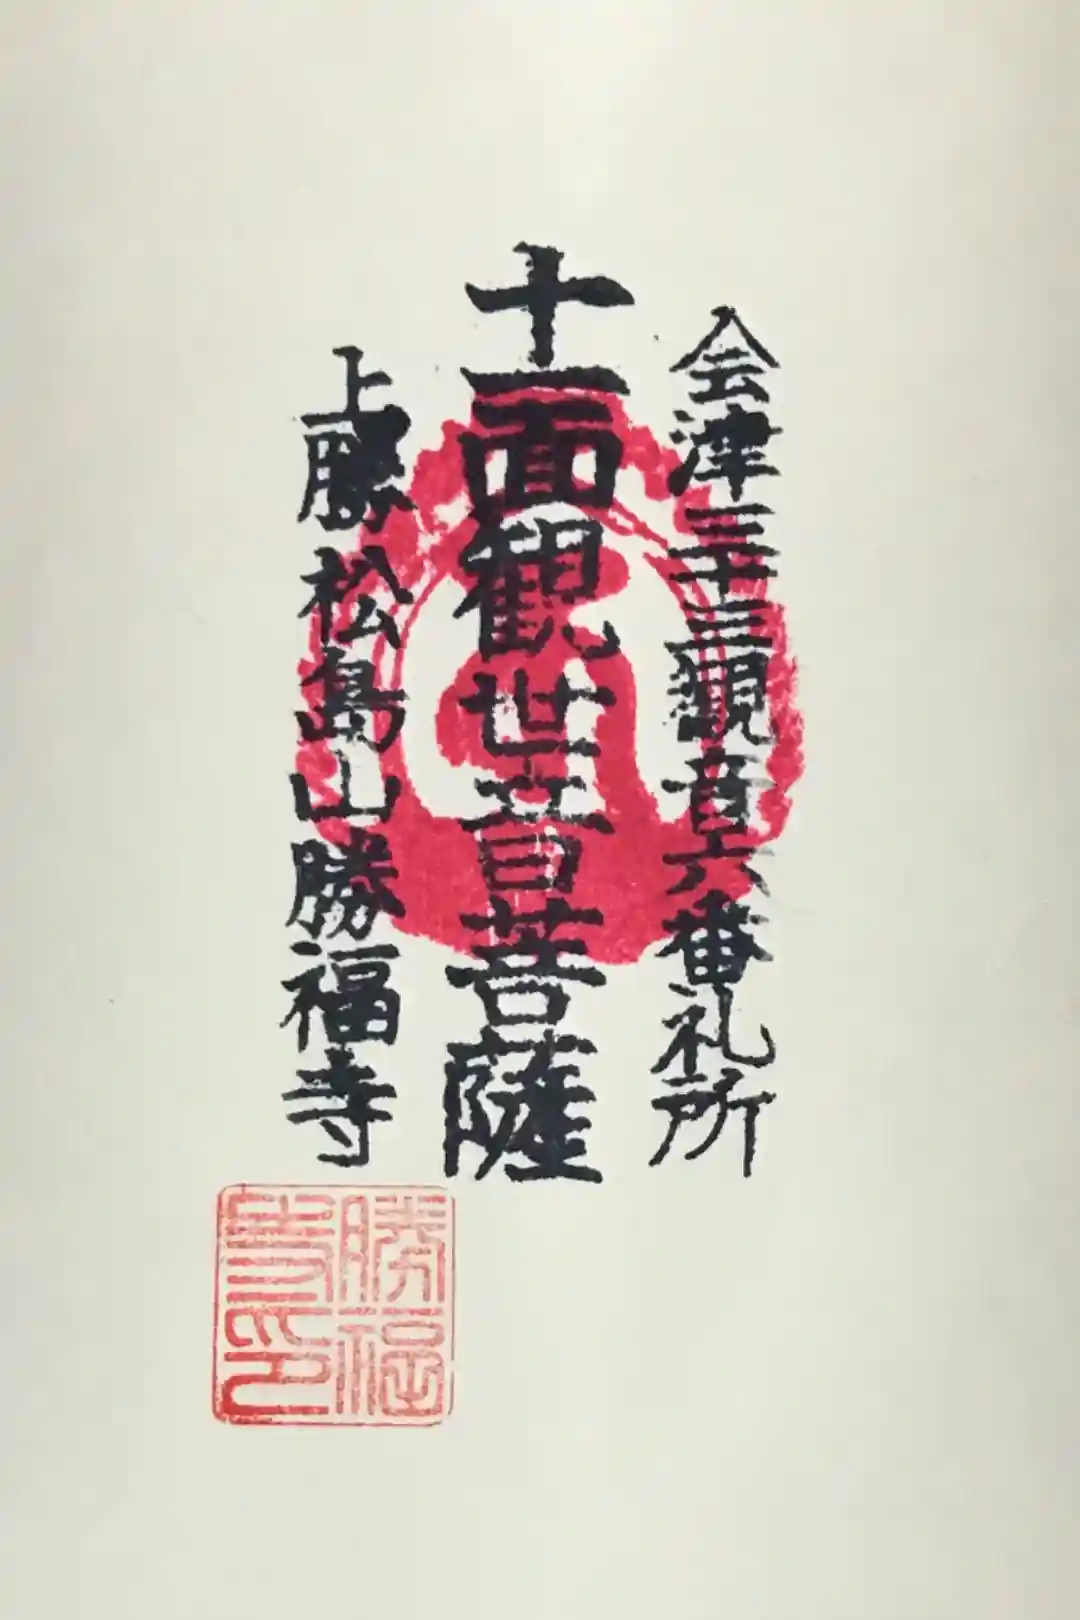 会津三十三観音六番礼所
十一面観世音菩薩
上勝 松島山勝福寺
勝福寺印